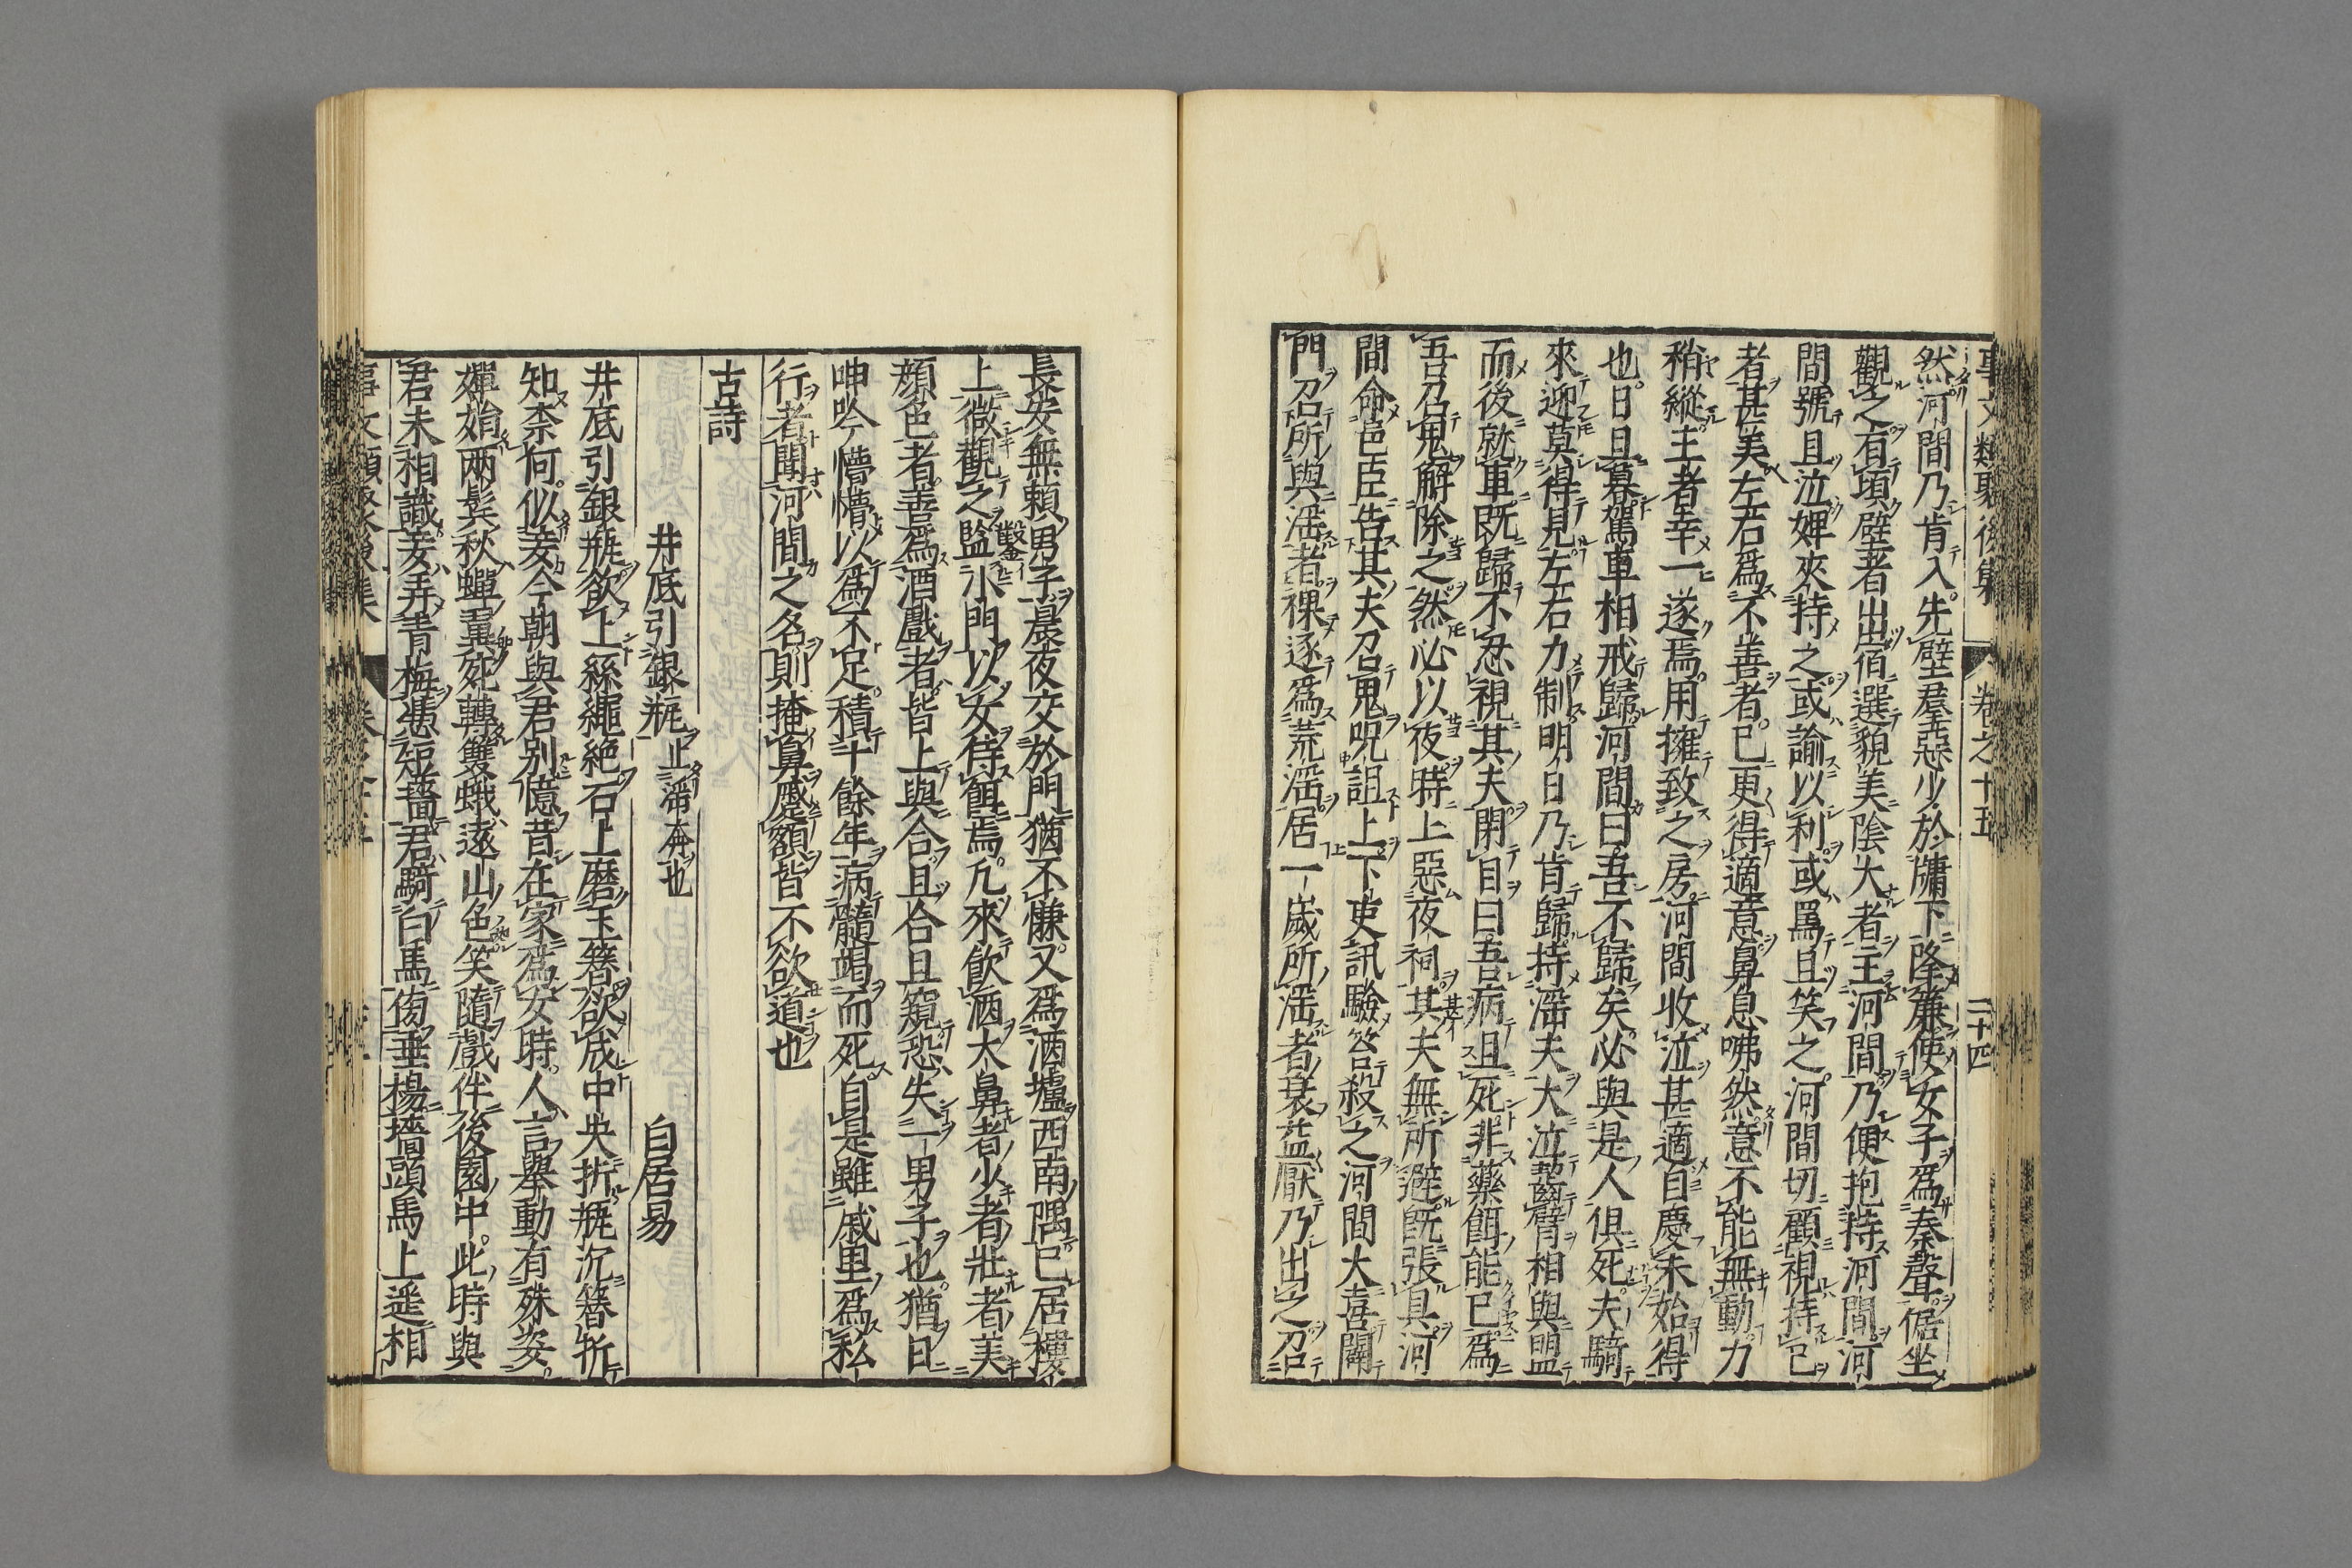 事文類聚後集 卷之十五 二十四
然河間乃肯入先壁羣惡少於牖下降簾使女子爲秦聲倨坐
觀之有頃壁者出宿選貌美陰大者主河間乃便抱持河間河
間號且泣婢夾持之或諭以利或罵且笑之河間切顧視持己
者甚美左右爲不善者已更得適意鼻息咈然意不能無動力
稍縱主者幸一遂焉用擁致之房河間收泣甚適自慶未始得
也日且暮駕車相戒歸河間曰吾不歸矣必與是人俱死夫騎
來迎莫得見左右力制明日乃肯歸持淫夫大泣齧臂相與盟
而後就車既歸不忍視其夫閉目曰吾病且死非藥餌能已爲
吾召鬼解除之然必以夜時上惡夜祠其夫無所避既張具河
間命邑臣告其夫召鬼呪詛上下吏訊驗笞殺之河間大喜闢
門召所與淫者裸逐爲荒淫居一歲所淫者衰益厭乃出之召
長安無賴男子晨夜交於門猶不慊又爲酒壚西南隅已居樓
上微觀之鑿小門以女侍餌焉凡來飲酒大鼻者少者壯者美
顔色者善爲酒戲者皆上與合且合且窺恐失一男子也猶日
呻吟懵懵以爲不足積十餘年病髓竭而死自是雖戚里爲私
行者聞河間之名則掩鼻蹙額皆不欲道也
古詩
井底引銀瓶 止淫奔也 白居易
井底引銀瓶欲上絲繩絕石上磨玉簪欲成中央折瓶沉簪折
知柰何似妾今朝與君別憶昔在家爲女時人言舉動有殊姿
嬋娟兩鬂秋蟬翼宛轉雙蛾遠山色笑隨戲伴後園中此時與
君未相識妾弄青梅憑短墻君騎白馬傍垂楊墻頭馬上遥相